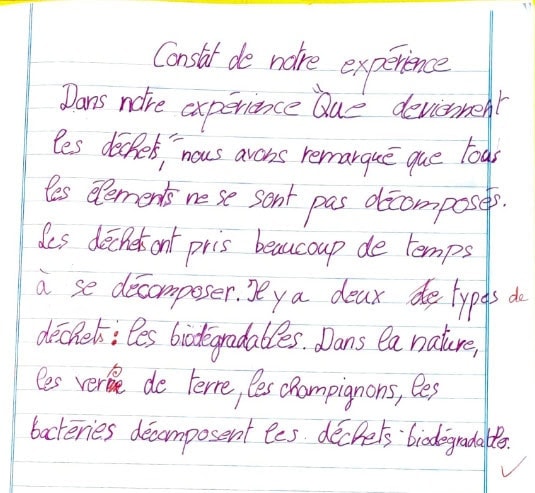 Constat de notre expérience
Dans notre expérience "Que deviennent
les déchets", nous avons remarqué que tous
les élements ne se sont pas décomposés.
Les déchets ont pris beaucoup de temps
à se décomposer. Il y a deux types de
déchets : les biodégradables. Dans la nature,
les vers de terre, les champignons, les
bactéries décomposent les déchets biodégradables.